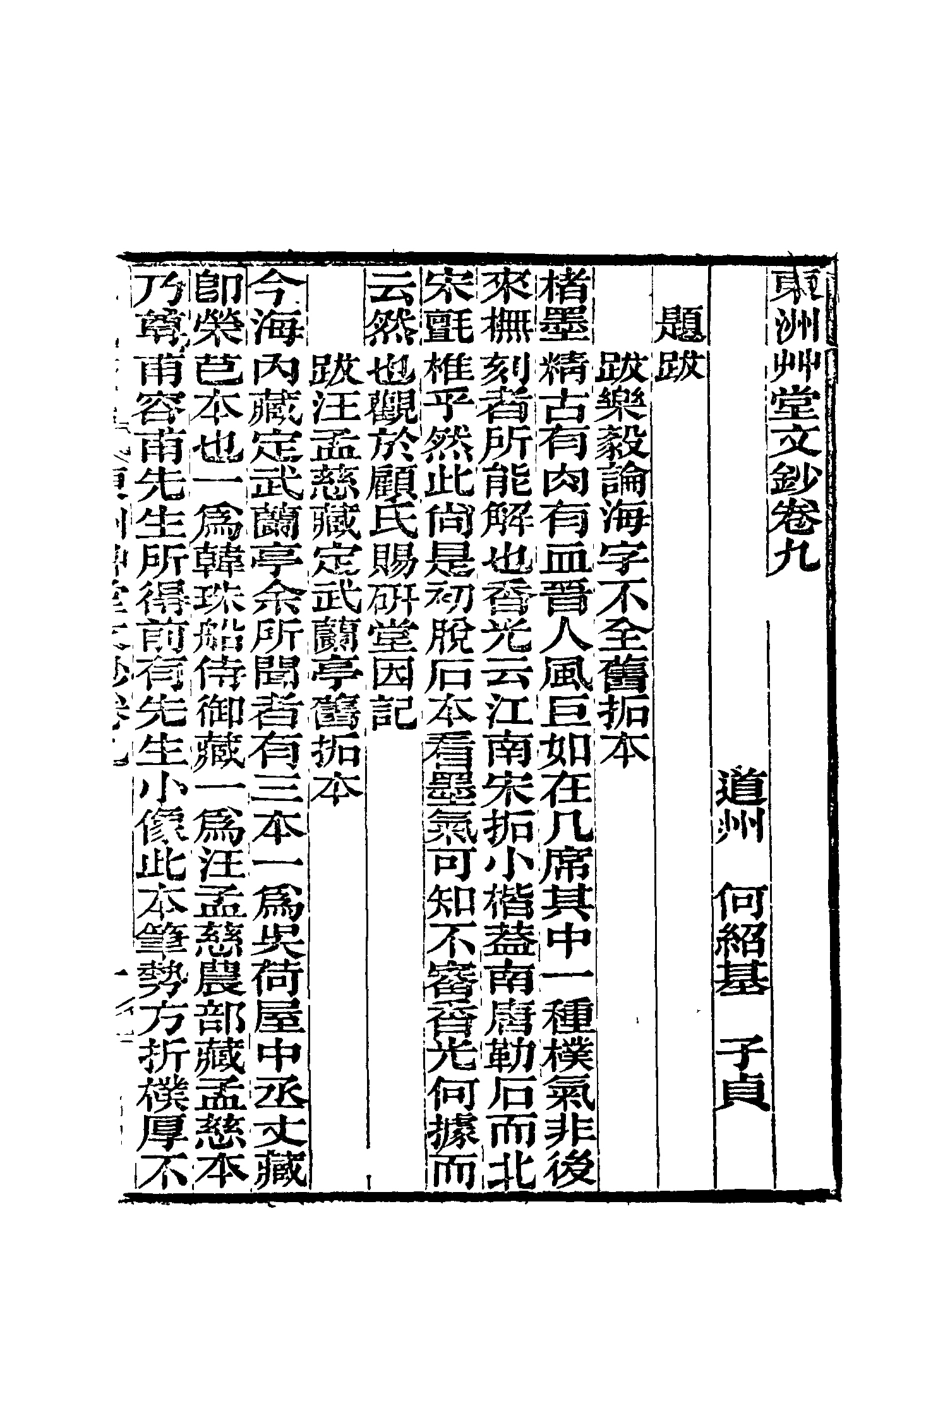 東洲艸堂文鈔卷九
道州　何紹基　子貞
題跋
跋樂毅論海字不全舊拓本
楮墨精古有肉有血晋人風巨如在几席其中一種樸氣非後
來撫刻者所能解也香光云江南宋拓小楷葢南唐勒石而北
宋氈椎乎然此尙是初脫石本看墨氣可知不審香光何據而
云然也觀於顧氏賜硏堂因記
跋汪孟慈藏定武蘭亭舊拓本
今海內藏定武蘭亭余所聞者有三本一爲吳荷屋中丞丈藏
卽榮芑本也一爲韓珠船侍御藏一爲汪孟慈農部藏孟慈本
乃尊甫容甫先生所得前有先生小像此本筆勢方折樸厚不